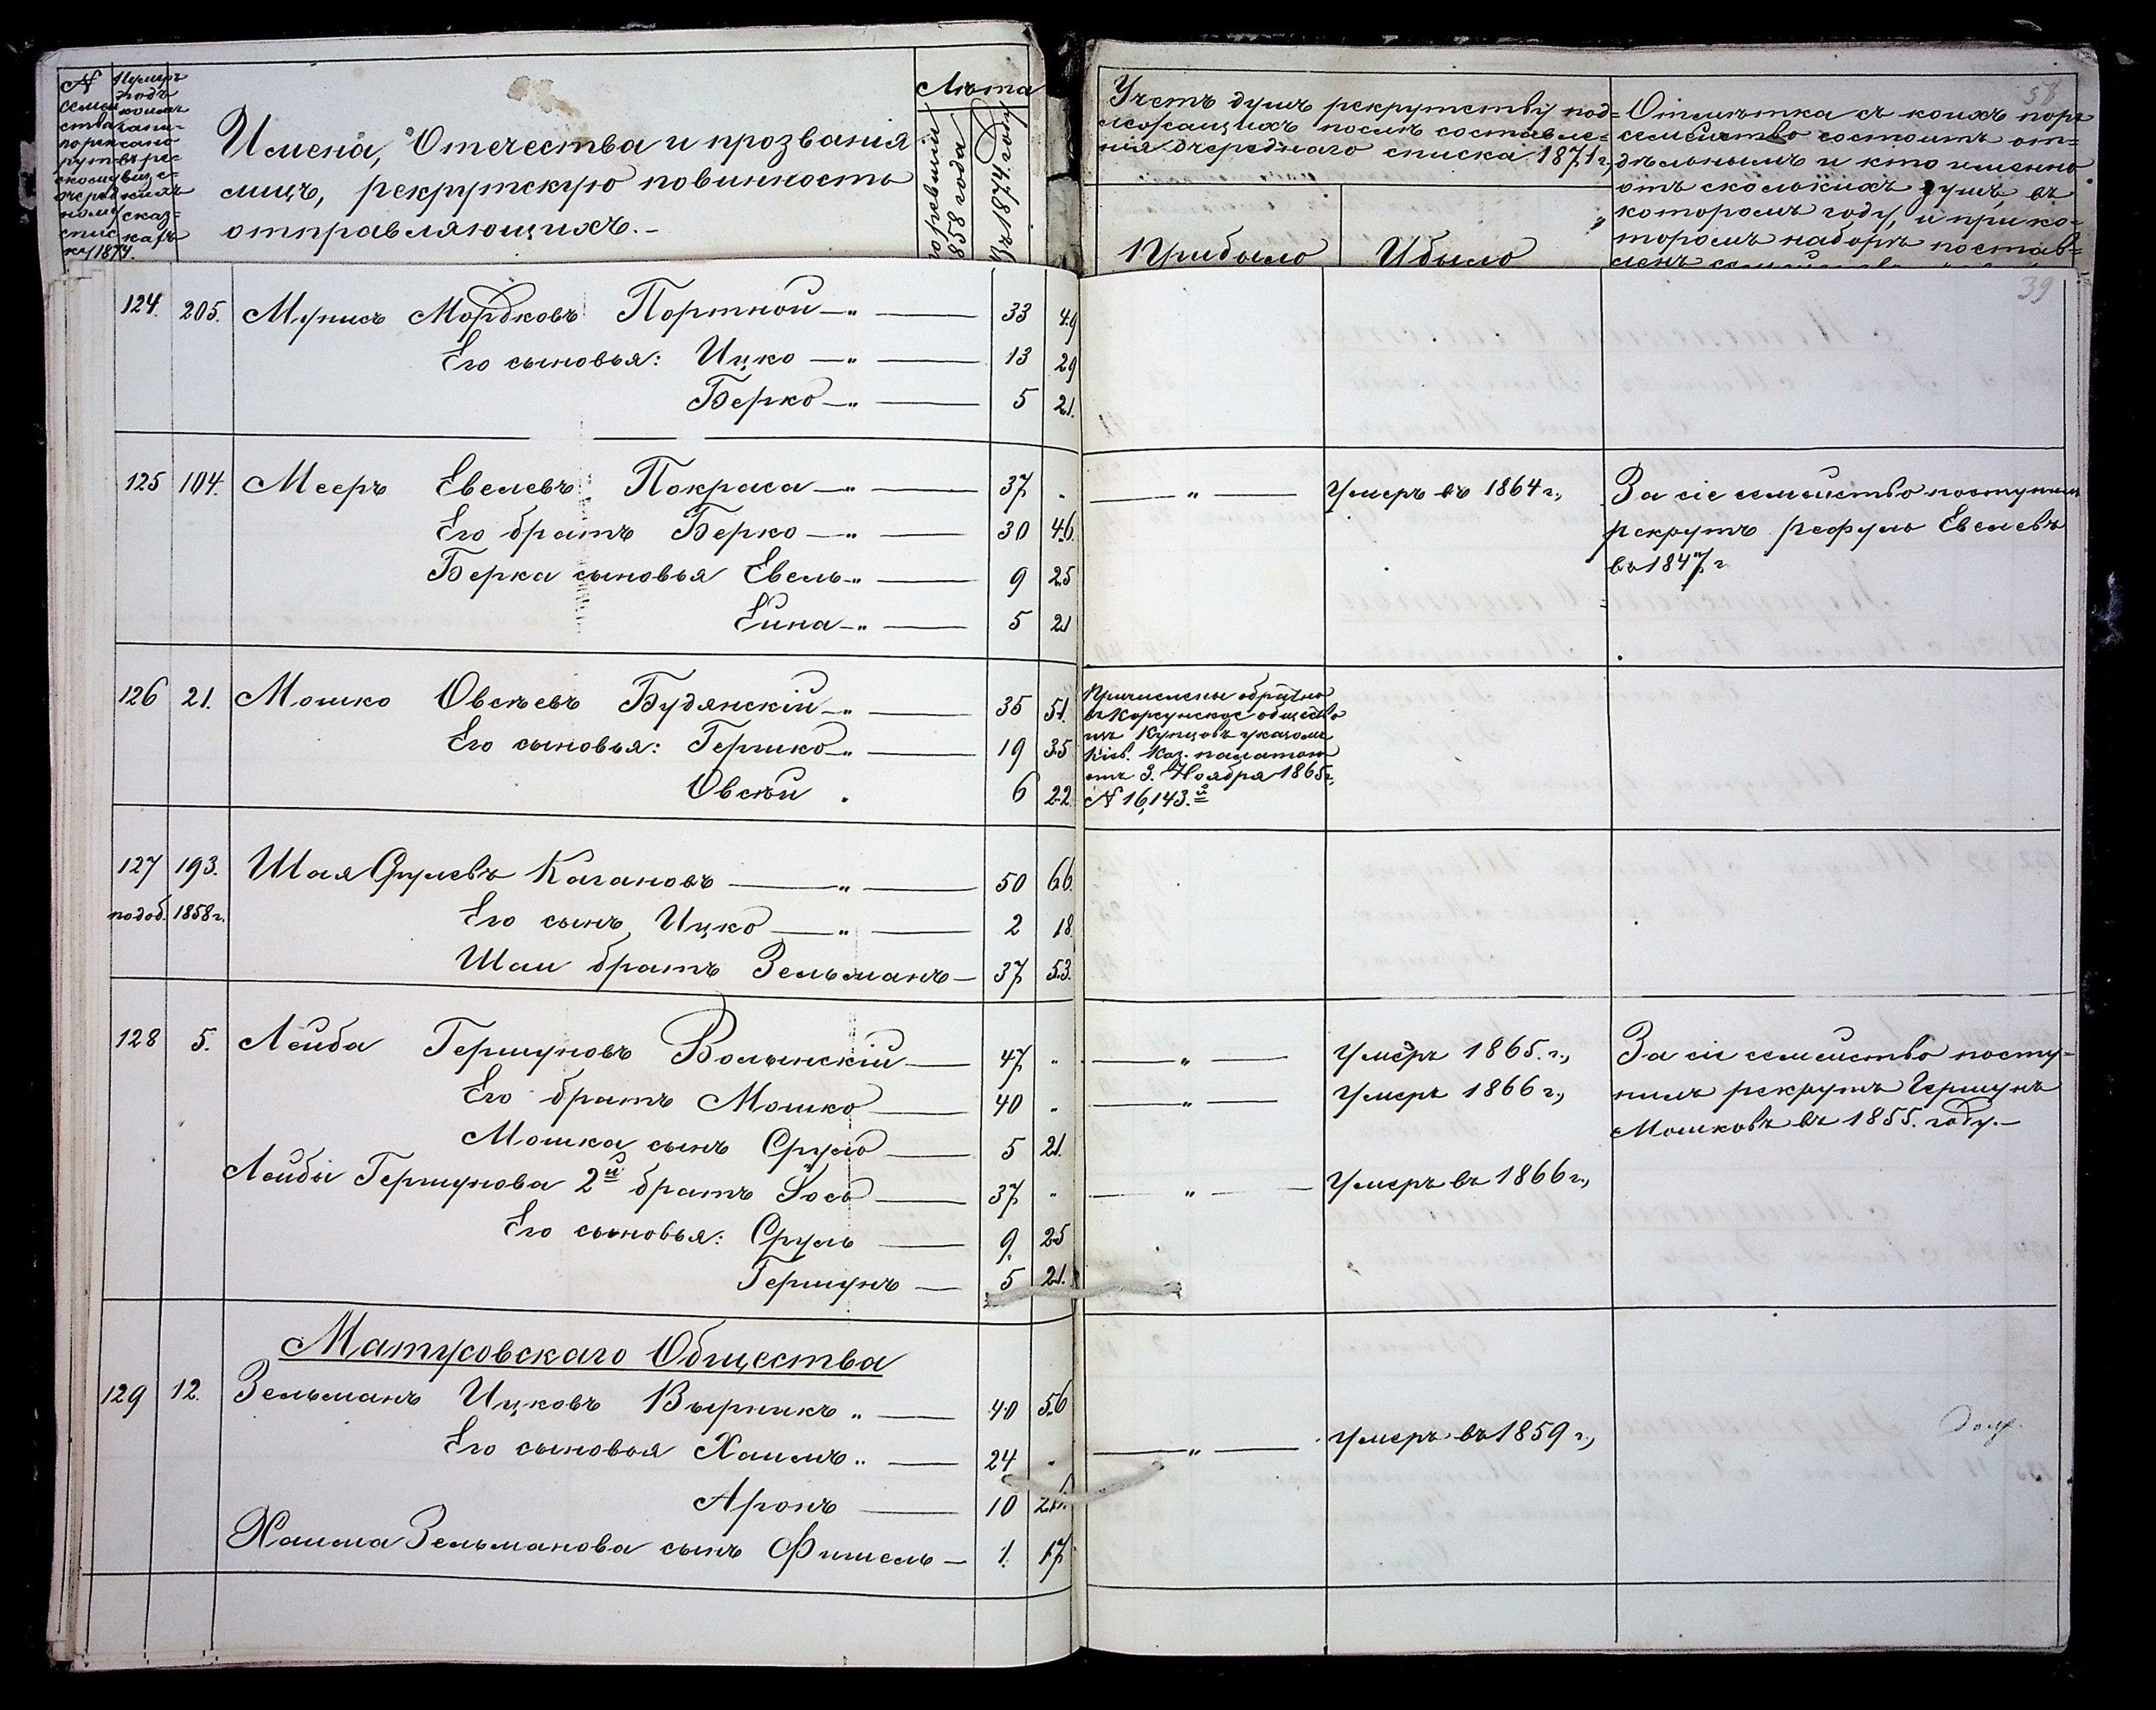 N семейства по рекрутскому очередному списку 1874.
Нумеръ подъ коимъ записано въ ревизскихъ сказкахъ
Имена, Отечества и прозванія
лицъ, рекрутскую повинность
отправляющихъ.-
Лѣта
по ревизіи 1858 года
къ 1874 году
Учетъ душъ рекрутству под=
лежащихъ послѣ составле=
нія очереднаго списка 1871 г.,
Прибыло
Убыло
58
Отмѣтка съ коихъ поръ
семейство состоитъ от=
дѣльнымъ и кто именно
отъ сколькихъ душъ, въ
которомъ году, и при ко=
торомъ наборѣ постав=
ленъ
39
124. 205. Мунись Мордковъ Портной —„— 33 49
Его сыновья: Ицко —„— 13 29
Берко —„— 5 21.
125 104. Мееръ Евелевъ Покраса —„— 37 . —„— Умеръ въ 1864 г., За сіе семейство поступилъ
Его братъ Берко —„— 30 46. рекрутъ Рефуль Евелевъ
въ 1847 г
Берка сыновья Евель „— 9 25
Ейна —„— 5 21
126 21. Мошко Овсѣевъ Будянскій —„— 35 51.
Его сыновья: Гершко „— 19 35
Овсѣй . 6 22.
Причислены обратно
въ Корсунское общество
изъ Купцовъ указомъ
Кіев. Каз. палатою
отъ 3. Ноября 1865 г.,
N 16,143.й
127 193. Шая Срулевъ Кагановъ —„— 50 66.
по доб. 1858 г. Его сынъ Ицко —„— 2 18.
Шаи братъ Зельманъ — 37 53.
128 5. Лейба Гершуновъ Волынскій — 47 „ —„— Умеръ 1865. г., За сіе семейство посту=
Его братъ Мошко — 40 „ —„— Умеръ 1866 г., пилъ рекрутъ Гершунъ
Мошковъ въ 1855. году.—
Мошка сынъ Сруль — 5 21.
Лейбы Гершунова 2й братъ Іось — 37 „ —„— Умеръ въ 1866 г.,
Его сыновья: Сруль — 9. 25
Гершунъ — 5 21.
Матусовскаго Общества
129 12. Зельманъ Ицковъ Вырникъ „— 40 56
Его сыновья Хаимъ „— 24 . —„— Умеръ въ 1859 г.,
Аронъ — 10 26.
Хаима Зельманова сынъ Фишель — 1. 17